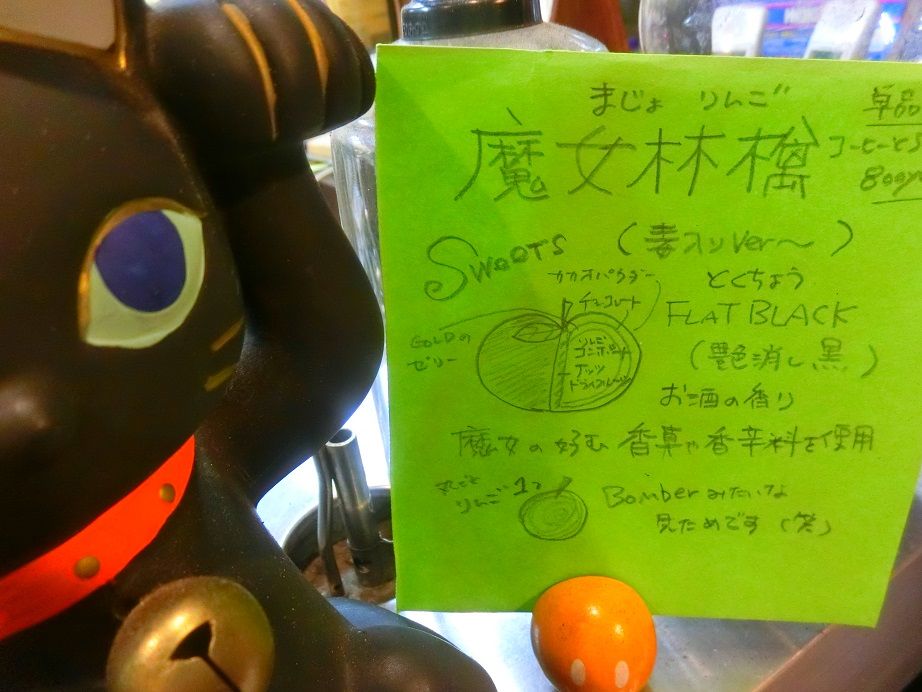 まじょ りんご
魔女林檎
単品
コーヒーと
800y
SWEETS
(毒入りver〜)
カカオパウダー
チョコレート
とくちょう
FLAT BLACK
(艶消し黒)
お酒の香り
GOLDの
ゼリー
りんご
コンポート
ナッツ
ドライフルーツ
魔女の好む香草や香辛料を使用
丸ごと
りんご1つ
Bomberみたいな
見ためです(笑)